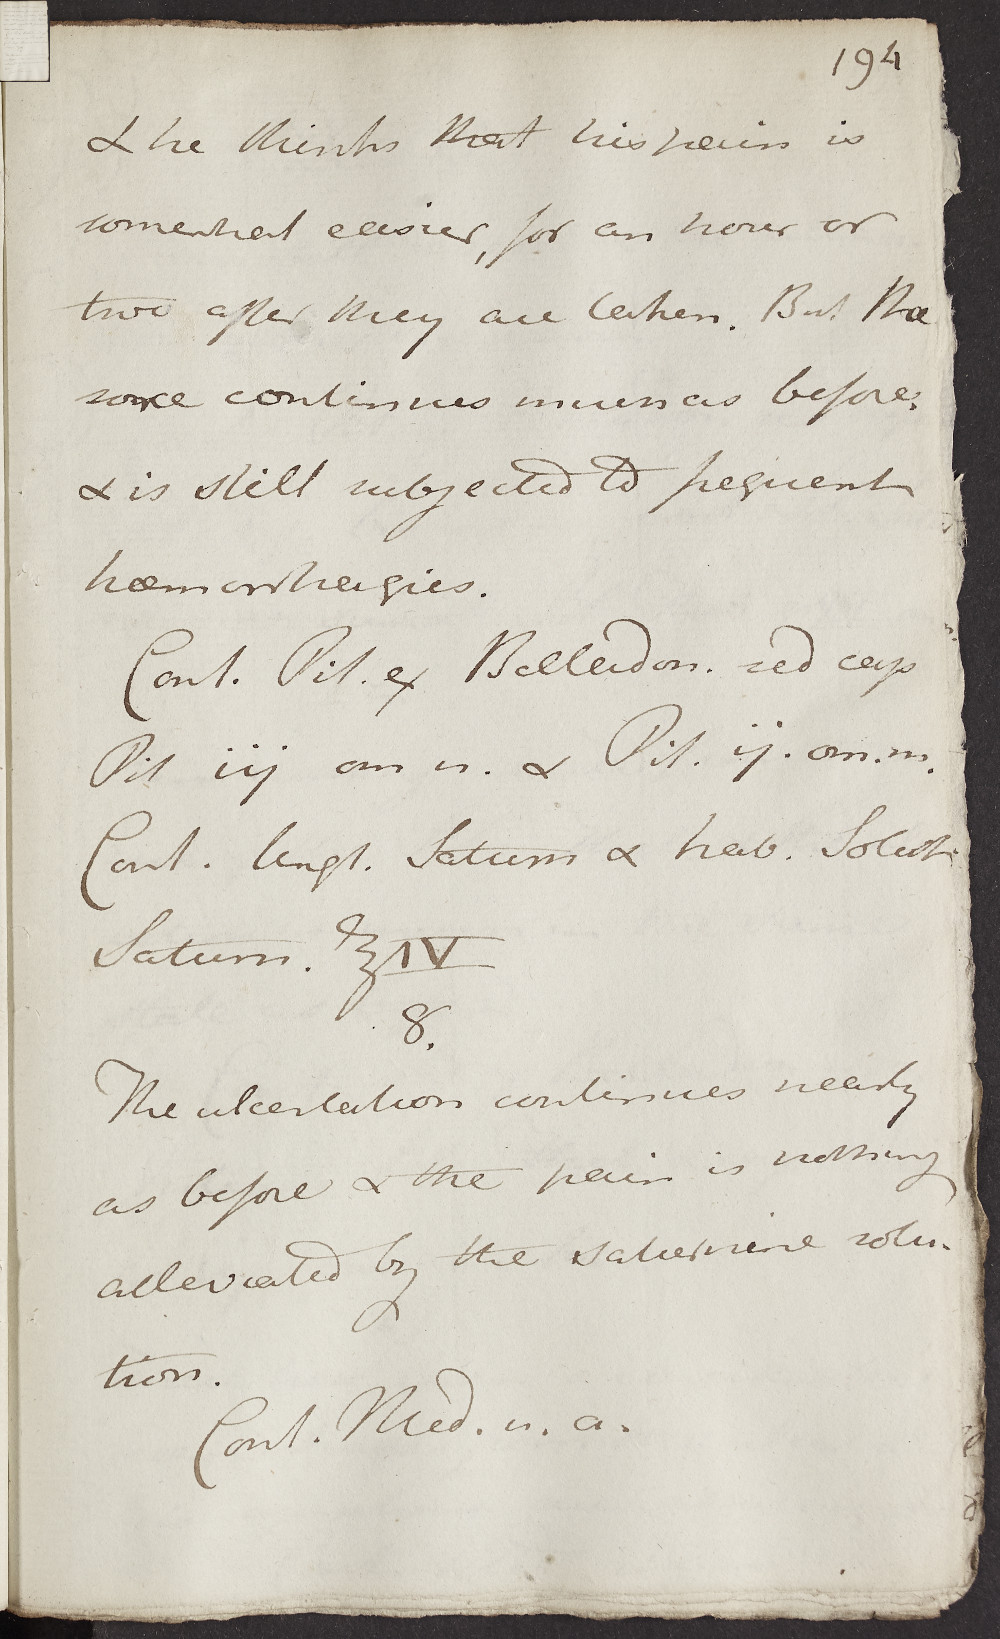 194
& he thinks that his pain is
somewhat easier, for an hour or
two after they are taken. But the
sore continues much as before,
& is still subjected to frequent
hæmorrhagies.
Cont. Pil. ex Belladon. sed cap
Pil iij om n. & Pil. ij. om. m.
Cont. Ungt. Saturn & hab. Solut.
Saturn. ℥IV
8.
The ulceration continues nearly
as before & the pain is nothing
alleviated by the saturnine solu-
tion.
Cont. Med. u. a.